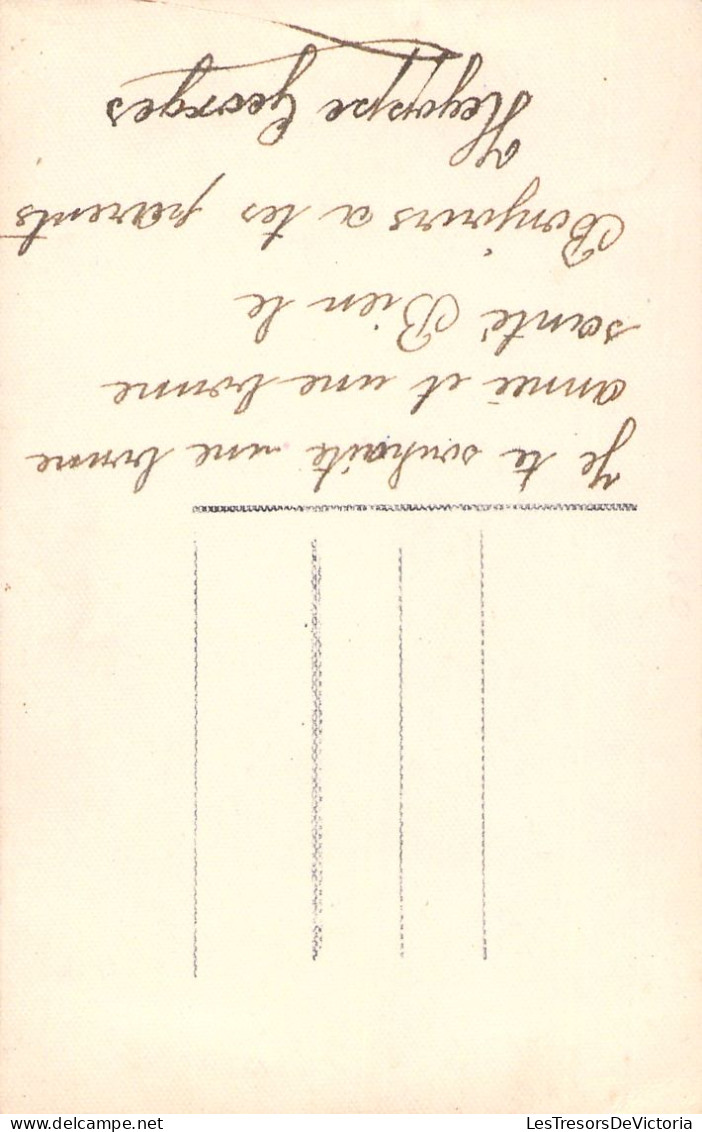 Je te souhaite une bonne
anneé et une bonne
santé Bien le
Bonjours a tes parents
Heyoppe Georges
LesTresorsDeVictoria
delcampe.net